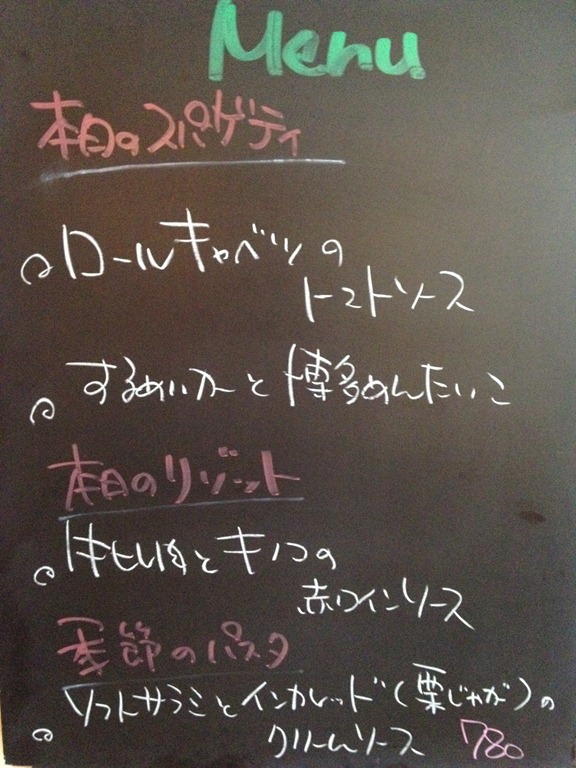 Menu
本日のスパゲティ
ロールキャベツの
トマトソース
するめいかと博多めんたいこ
本日のリゾット
牛ヒレ肉とキノコの
赤ワインソース
季節のパスタ
ソフトサラミとインカレッド(栗じゃが)の
クリームソース 780